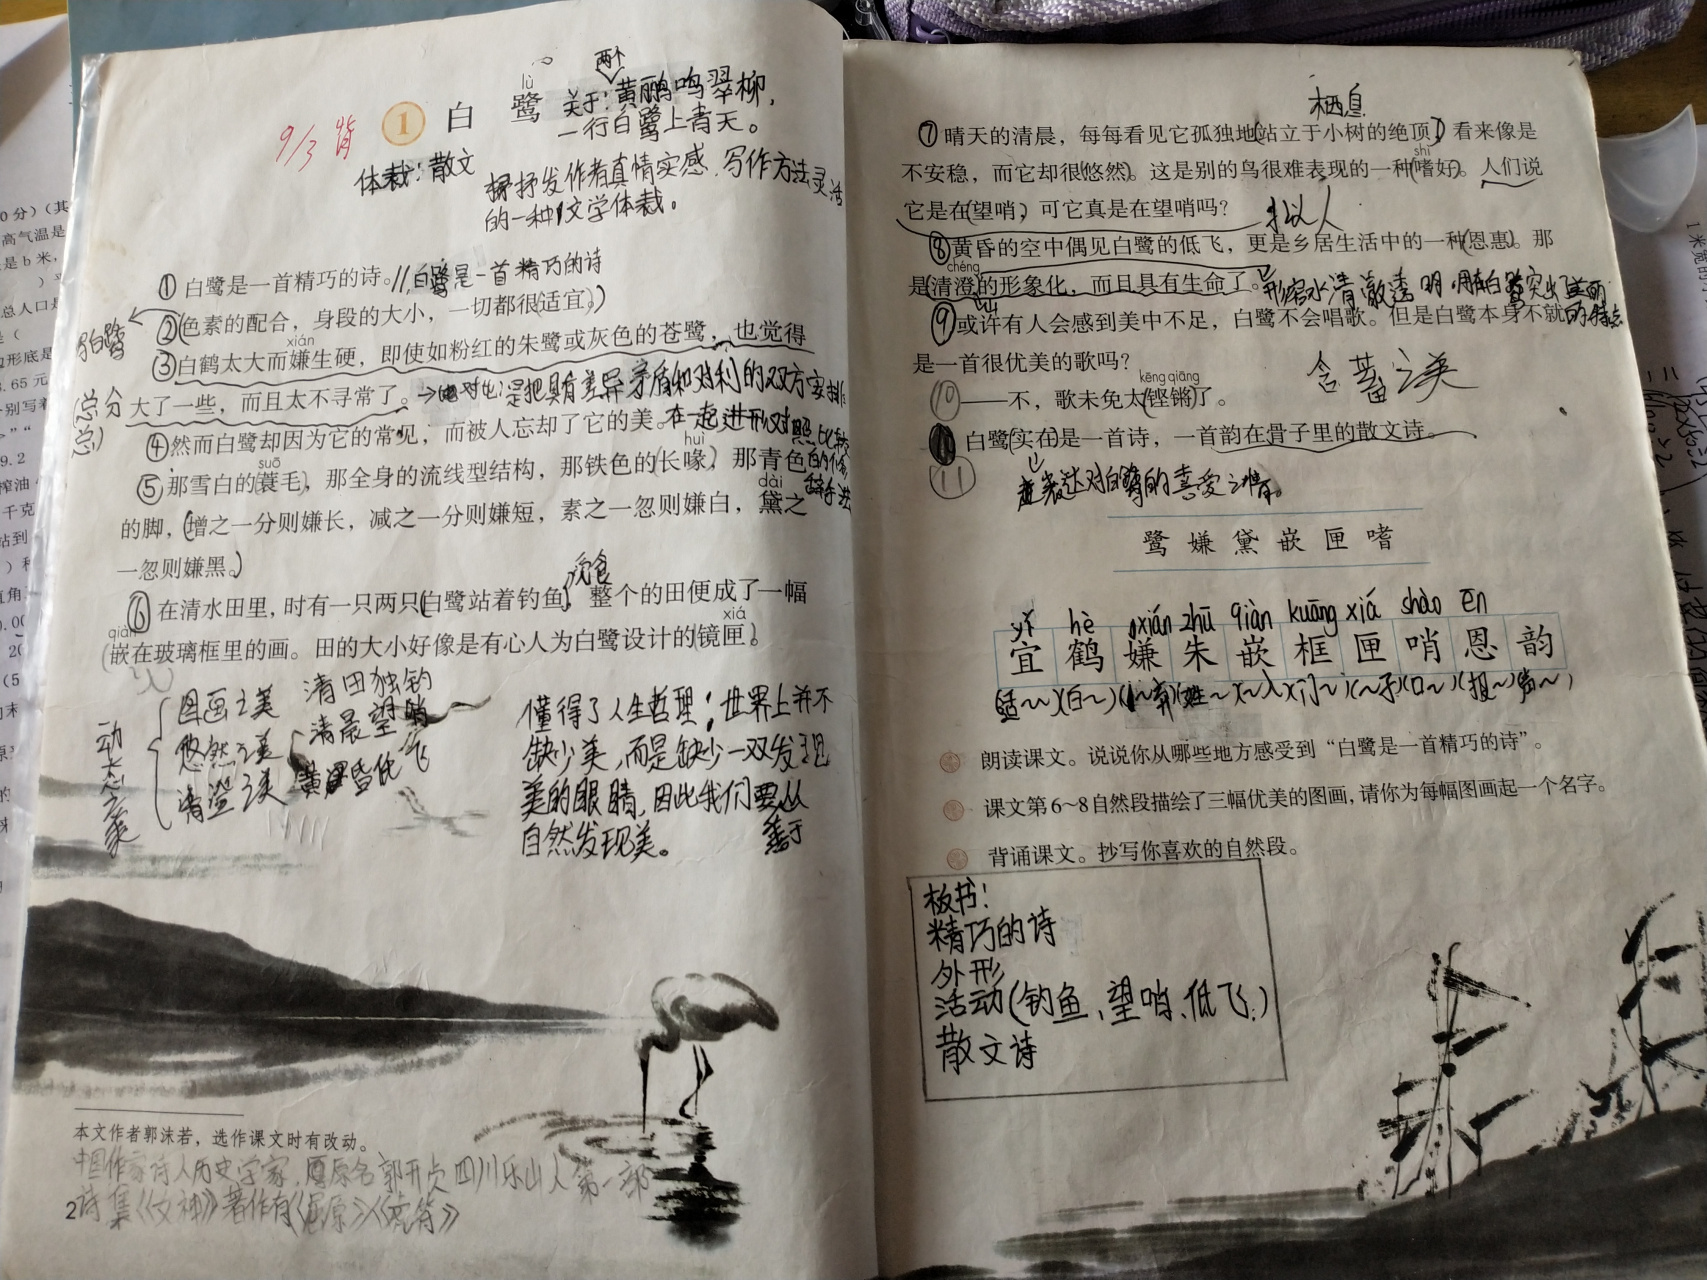 两个
lù
1 白鹭
关于:黄鹂鸣翠柳,
一行白鹭上青天。
9/3 背
体裁:散文
抒发作者真情实感,写作方法灵活
的一种文学体裁。
①白鹭是一首精巧的诗。
白鹭是一首精巧的诗
②色素的配合,身段的大小,一切都很适宜。
xián
③白鹤太大而嫌生硬,即使如粉红的朱鹭或灰色的苍鹭,也觉得
大了一些,而且太不寻常了。
对比:是把具有差异矛盾和对利的双方安排
(总分
总)
④然而白鹭却因为它的常见,而被人忘却了它的美。
在一起进形对照比较
suō huì
⑤那雪白的蓑毛,那全身的流线型结构,那铁色的长喙,那青色
dài
的脚,增之一分则嫌长,减之一分则嫌短,素之一忽则嫌白,黛之
一忽则嫌黑。
觅食
⑥在清水田里,时有一只两只白鹭站着钓鱼,整个的田便成了一幅
qiàn xiá
嵌在玻璃框里的画。田的大小好像是有心人为白鹭设计的镜匣。
图画之美 清田独钓
悠然之美 清晨望哨
清澄之美 黄昏低飞
懂得了人生哲理:世界上并不
缺少美,而是缺少一双发现
美的眼睛,因此我们要从
善于
自然发现美。
本文作者郭沫若,选作课文时有改动。
中国作家诗人历史学家,原名郭开贞四川乐山人第一部
诗集《女神》著作有《屈原》《虎符》
2
栖息
⑦晴天的清晨,每每看见它孤独地站立于小树的绝顶,看来像是
shì
不安稳,而它却很悠然。这是别的鸟很难表现的一种嗜好。人们说
它是在望哨,可它真是在望哨吗?
拟人
⑧黄昏的空中偶见白鹭的低飞,更是乡居生活中的一种恩惠。那
chéng
是清澄的形象化,而且具有生命了。
形容水清澈透明,
⑨或许有人会感到美中不足,白鹭不会唱歌。但是白鹭本身不就
是一首很优美的歌吗?
含蓄之美
kēng qiāng
⑩——不,歌未免太铿锵了。
⑪白鹭实在是一首诗,一首韵在骨子里的散文诗。
表达对白鹭的喜爱之情。
鹭 嫌 黛 嵌 匣 嗜
yí hè xián zhū qiàn kuāng xiá shào ēn
宜 鹤 嫌 朱 嵌 框 匣 哨 恩 韵
朗读课文。说说你从哪些地方感受到“白鹭是一首精巧的诗”。
课文第6~8自然段描绘了三幅优美的图画,请你为每幅图画起一个名字。
背诵课文。抄写你喜欢的自然段。
板书:
精巧的诗
外形
活动(钓鱼、望哨、低飞)
散文诗